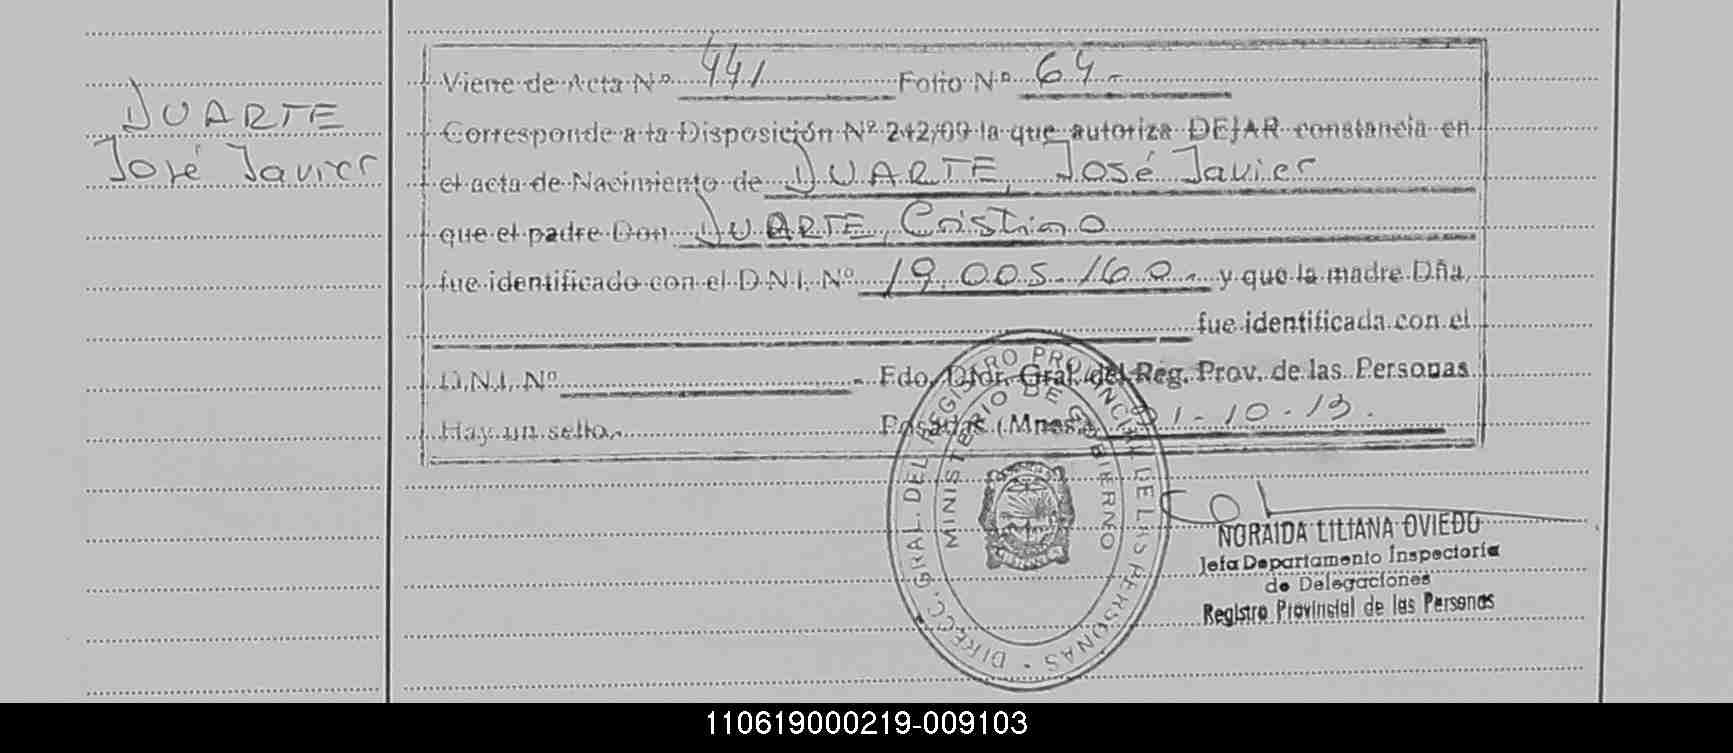 DUARTE
José Javier
Viene de Acta Nº 441 Folio Nº 64.-
Corresponde a la Disposición Nº 242/09 la que autoriza DEJAR constancia en
el acta de Nacimiento de DUARTE, José Javier
que el padre Don DUARTE, Cristino
fue identificado con el D.N.I. Nº 19.005.160.- y que la madre Dña.
fue identificada con el
D.N.I. Nº - Fdo. Dtor. Gral. del Reg. Prov. de las Personas
Hay un sello.- Posadas (Mnes.) 21-10-13.
DIRECC. GRAL. DEL REGISTRO PROVINCIAL DE LAS PERSONAS
MINISTERIO DE GOBIERNO
NORAIDA LILIANA OVIEDO
Jefa Departamento Inspectoría
de Delegaciones
Registro Provincial de las Personas
110619000219-009103